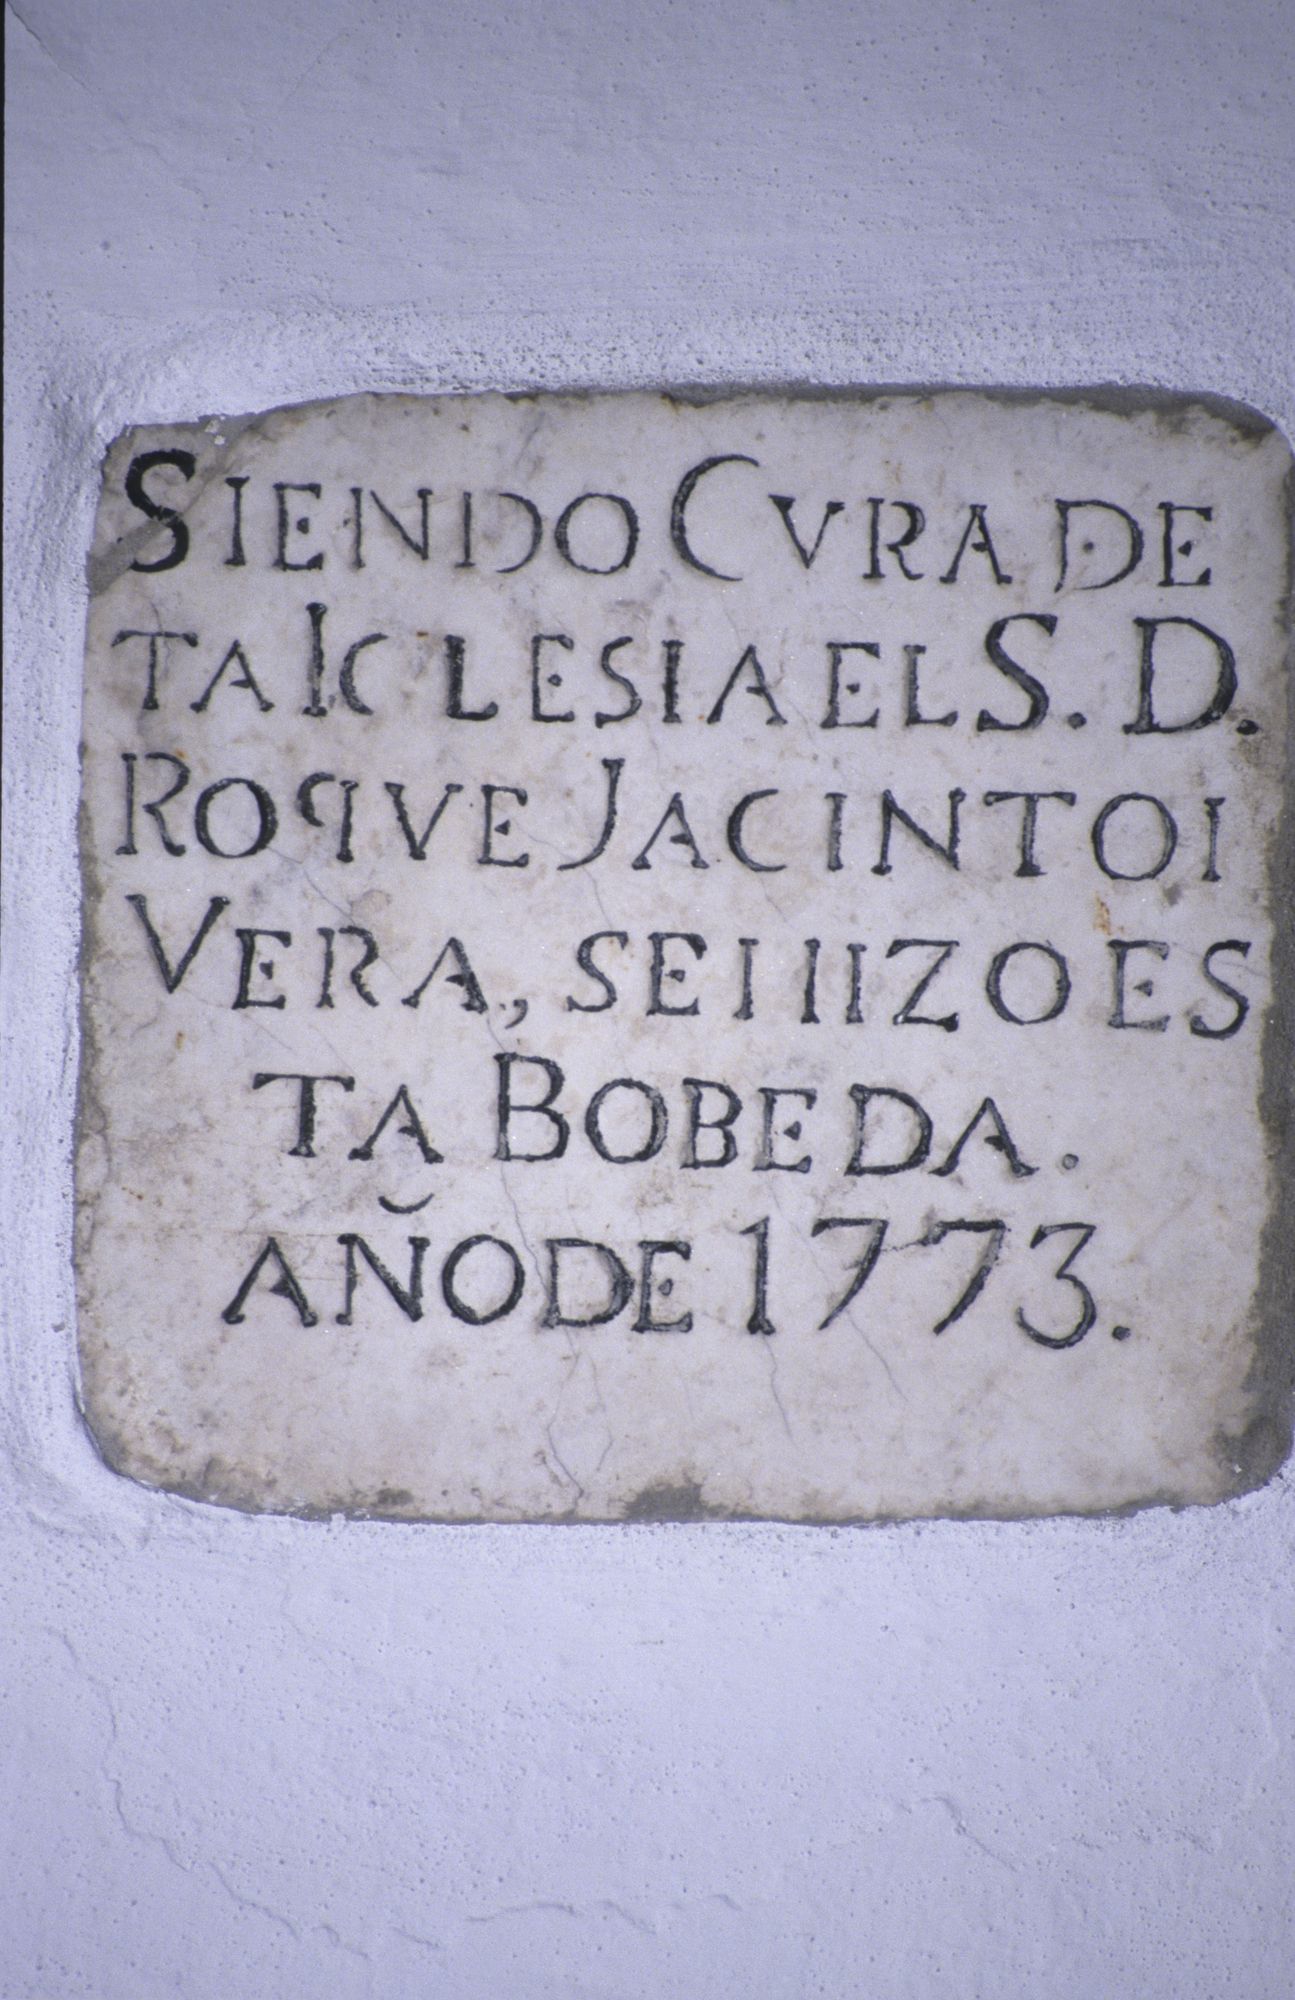 SIENDO CVRA DE
TA IGLESIA EL S. D.
ROqVE JACINTO I
VERA, SE I IIIZO ES
TA BOBEDA.
AÑO DE 1773.